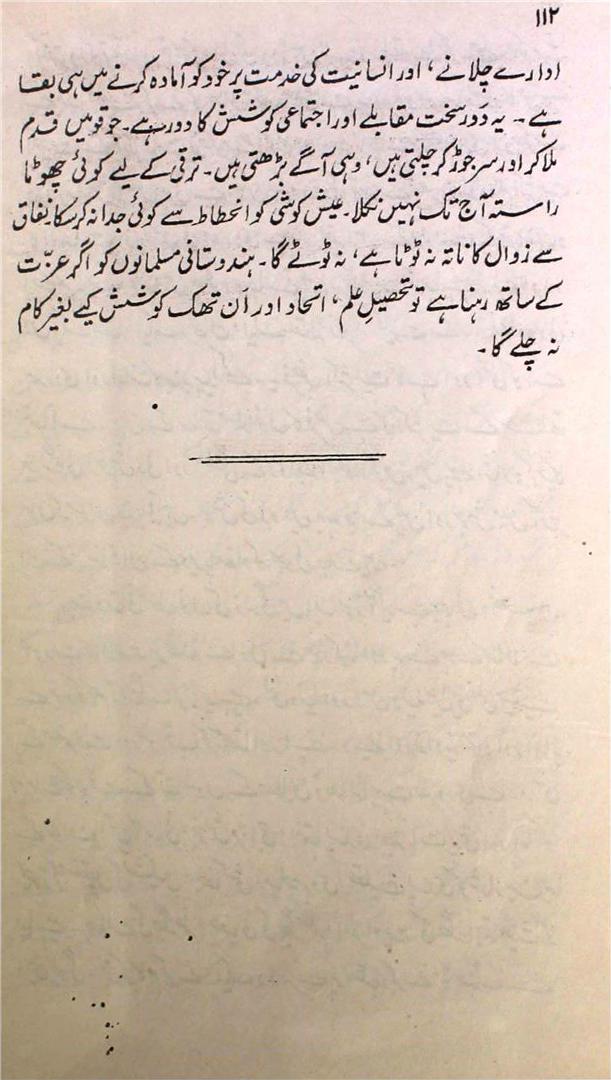 ۱۱۲
ادارے چلانے، اور انسانیت کی خدمت پر خود کو آمادہ کرنے میں ہی بقا
ہے۔ یہ دَور سخت مقابلے اور اجتماعی کوشش کا دور ہے۔ جو قومیں قدم
ملا کر اور سر جوڑ کر چلتی ہیں، وہی آگے بڑھتی ہیں۔ ترقی کے لیے کوئی چھوٹا
راستہ آج تک نہیں نکلا۔ عیش کوشی کو انحطاط سے کوئی جدا نہ کر سکا نفاق
سے زوال کا ناتہ نہ ٹوٹا ہے، نہ ٹوٹے گا۔ ہندوستانی مسلمانوں کو اگر عزّت
کے ساتھ رہنا ہے تو تحصیلِ علم، اتحاد اور اَن تھک کوشش کیے بغیر کام
نہ چلے گا۔